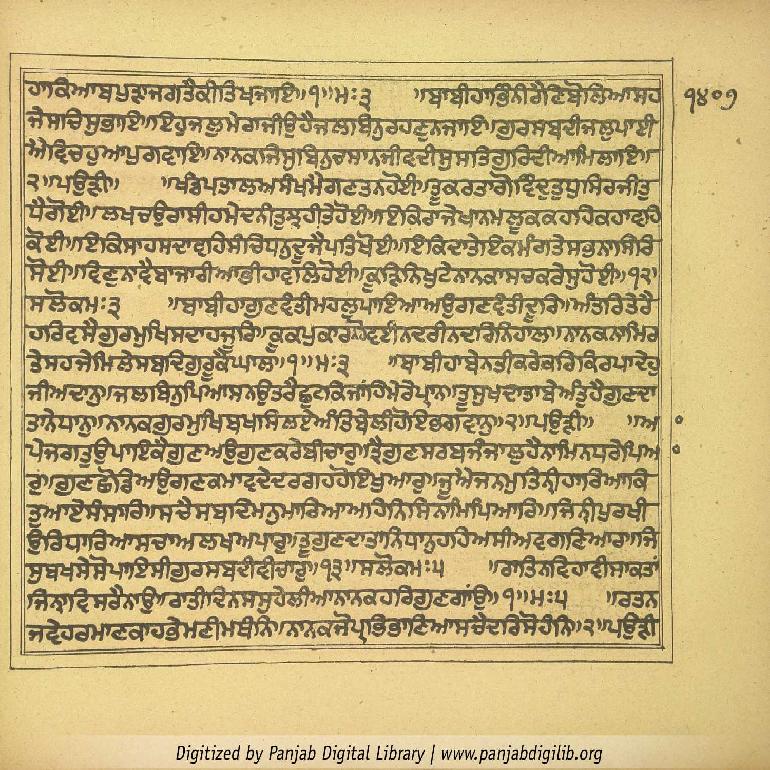 ਹਾਕਿਆਬਪੁੜਾਜਗਤੈਕੀਤਿਖਜਾਇ॥੧॥ਮਃ੩ ॥ਬਾਬੀਹਾਭਿੰਨੀਰੈਣਿਬੋਲਿਆਸਹ
੧੪੦੭
ਜੇਸਚਿਸੁਭਾਇ॥ਇਹੁਜਲੁਮੇਰਾਜੀਉਹੈਜਲਬਿਨੁਰਹਣੁਨਜਾਇ॥ਗੁਰਸਬਦੀਜਲੁਪਾਈ
ਐਵਿਚਹੁਆਪੁਗਵਾਇ॥ਨਾਨਕਜਿਸੁਬਿਨੁਚਸਾਨਜੀਵਦੀਸੁਸਤਿਗੁਰਿਦੀਆਮਿਲਾਇ॥
੨॥ਪਉੜੀ॥ ॥ਖੰਡਪਤਾਲਅਸੰਖਮੈਗਣਤਨਹੋਈ॥ਤੂਕਰਤਾਗੋਵਿੰਦੁਤੁਧੁਸਿਰਜੀਤੁ
ਧੈਗੋਈ॥ਲਖਚਉਰਾਸੀਹਮੇਦਨੀਤੁਝਹੀਤੇਹੋਈ॥ਇਕਿਰਾਜੇਖਾਨਮਲੂਕਕਹਹਿਕਹਾਵਹਿ
ਕੋਈ॥ਇਕਿਸਾਹਸਦਾਵਹਿਸੰਚਿਧਨੁਦੂਜੈਪਤਿਖੋਈ॥ਇਕਿਦਾਤੇਇਕਮੰਗਤੇਸਭਨਾਸਿਰਿ
ਸੋਈ॥ਵਿਣੁਨਾਵੈਬਾਜਾਰੀਆਭੀਹਾਵਲਿਹੋਈ॥ਕੂੜਿਨਿਖੁਟੇਨਾਨਕਾਸਚਕਰੇਸੁਹੋਈ॥੧੨॥
ਸਲੋਕਮਃ੩ ॥ਬਾਬੀਹਾਗੁਣਵੰਤੀਮਹਲੁਪਾਇਆਅਉਗਣਵੰਤੀਦੂਰਿ॥ਅੰਤਰਿਤੇਰੈ
ਹਰਿਵਸੈਗੁਰਮੁਖਿਸਦਾਹਜੂਰਿ॥ਕੂਕਪੁਕਾਰਨਹੋਵਈਨਦਰੀਨਦਰਿਨਿਹਾਲ॥ਨਾਨਕਨਾਮਿਰ
ਤੇਸਹਜੇਮਿਲੇਸਬਦਿਗੁਰੂਕੈਘਾਲ॥੧॥ਮਃ੩ ॥ਬਾਬੀਹਾਬੇਨਤੀਕਰੇਕਰਿਕਿਰਪਾਦੇਹੁ
ਜੀਅਦਾਨੁ॥ਜਲਬਿਨੁਪਿਆਸਨਊਤਰੈਛੁਟਕਿਜਾਂਹਿਮੇਰੇਪ੍ਰਾਨ॥ਤੂਸੁਖਦਾਤਾਬੇਅੰਤੁਹੈਗੁਣਦਾ
ਤਾਨੇਧਾਨੁ॥ਨਾਨਕਗੁਰਮੁਖਿਬਖਸਿਲਏਅੰਤਿਬੇਲੀਹੋਇਭਗਵਾਨੁ॥੨॥ਪਉੜੀ॥ ॥ਅ
ਪੇਜਗਤੁਉਪਾਇਕੈਗੁਣਅਉਗੁਣਕਰੇਬੀਚਾਰੁ॥ਤ੍ਰੈਗੁਣਸਰਬਜੰਜਾਲੁਹੈਨਾਮਿਨਧਰੇਪਿਆ
ਰੁ॥ਗੁਣਛੋਡਿਅਉਗੁਣਕਮਾਵਦੇਦਰਗਹਹੋਇਖੁਆਰੁ॥ਜੂਐਜਨਮੁਤਿਨੀਹਾਰਿਆਕਿ
ਤੁਆਏਸੰਸਾਰਿ॥ਸਚੈਸਬਦਿਮਨੁਮਾਰਿਆਅਹਿਨਿਸਿਨਾਮਿਪਿਆਰਿ॥ਜਿਨੀਪੁਰਖੀ
ਉਰਿਧਾਰਿਆਸਚਾਅਲਖਅਪਾਰੁ॥ਤੂਗੁਣਦਾਤਾਨਿਧਾਨੁਹਹਿਅਸੀਅਵਗਣਿਆਰ॥ਜਿ
ਸੁਬਖਸੇਸੋਪਾਇਸੀਗੁਰਸਬਦੀਵੀਚਾਰੁ॥੧੩॥ਸਲੋਕਮਃ੫ ॥ਰਾਤਿਨਵਿਹਾਵੀਸਾਕਤਾਂ
ਜਿਨ੍ਹਾਵਿਸਰੈਨਾਉ॥ਰਾਤੀਦਿਨਸਸੁਹੇਲੀਆਨਾਨਕਹਰਿਗੁਣਗਾਂਉ॥੧॥ਮਃ੫ ॥ਰਤਨ
ਜਵੇਹਰਮਾਣਕਾਹਭੇਮਣੀਮਥੰਨਿ॥ਨਾਨਕਜੋਪ੍ਰਭਿਭਾਣਿਆਸਚੈਦਰਿਸੋਹੰਨਿ॥੨॥ਪਉੜੀ
Digitized by Panjab Digital Library | www.panjabdigilib.org